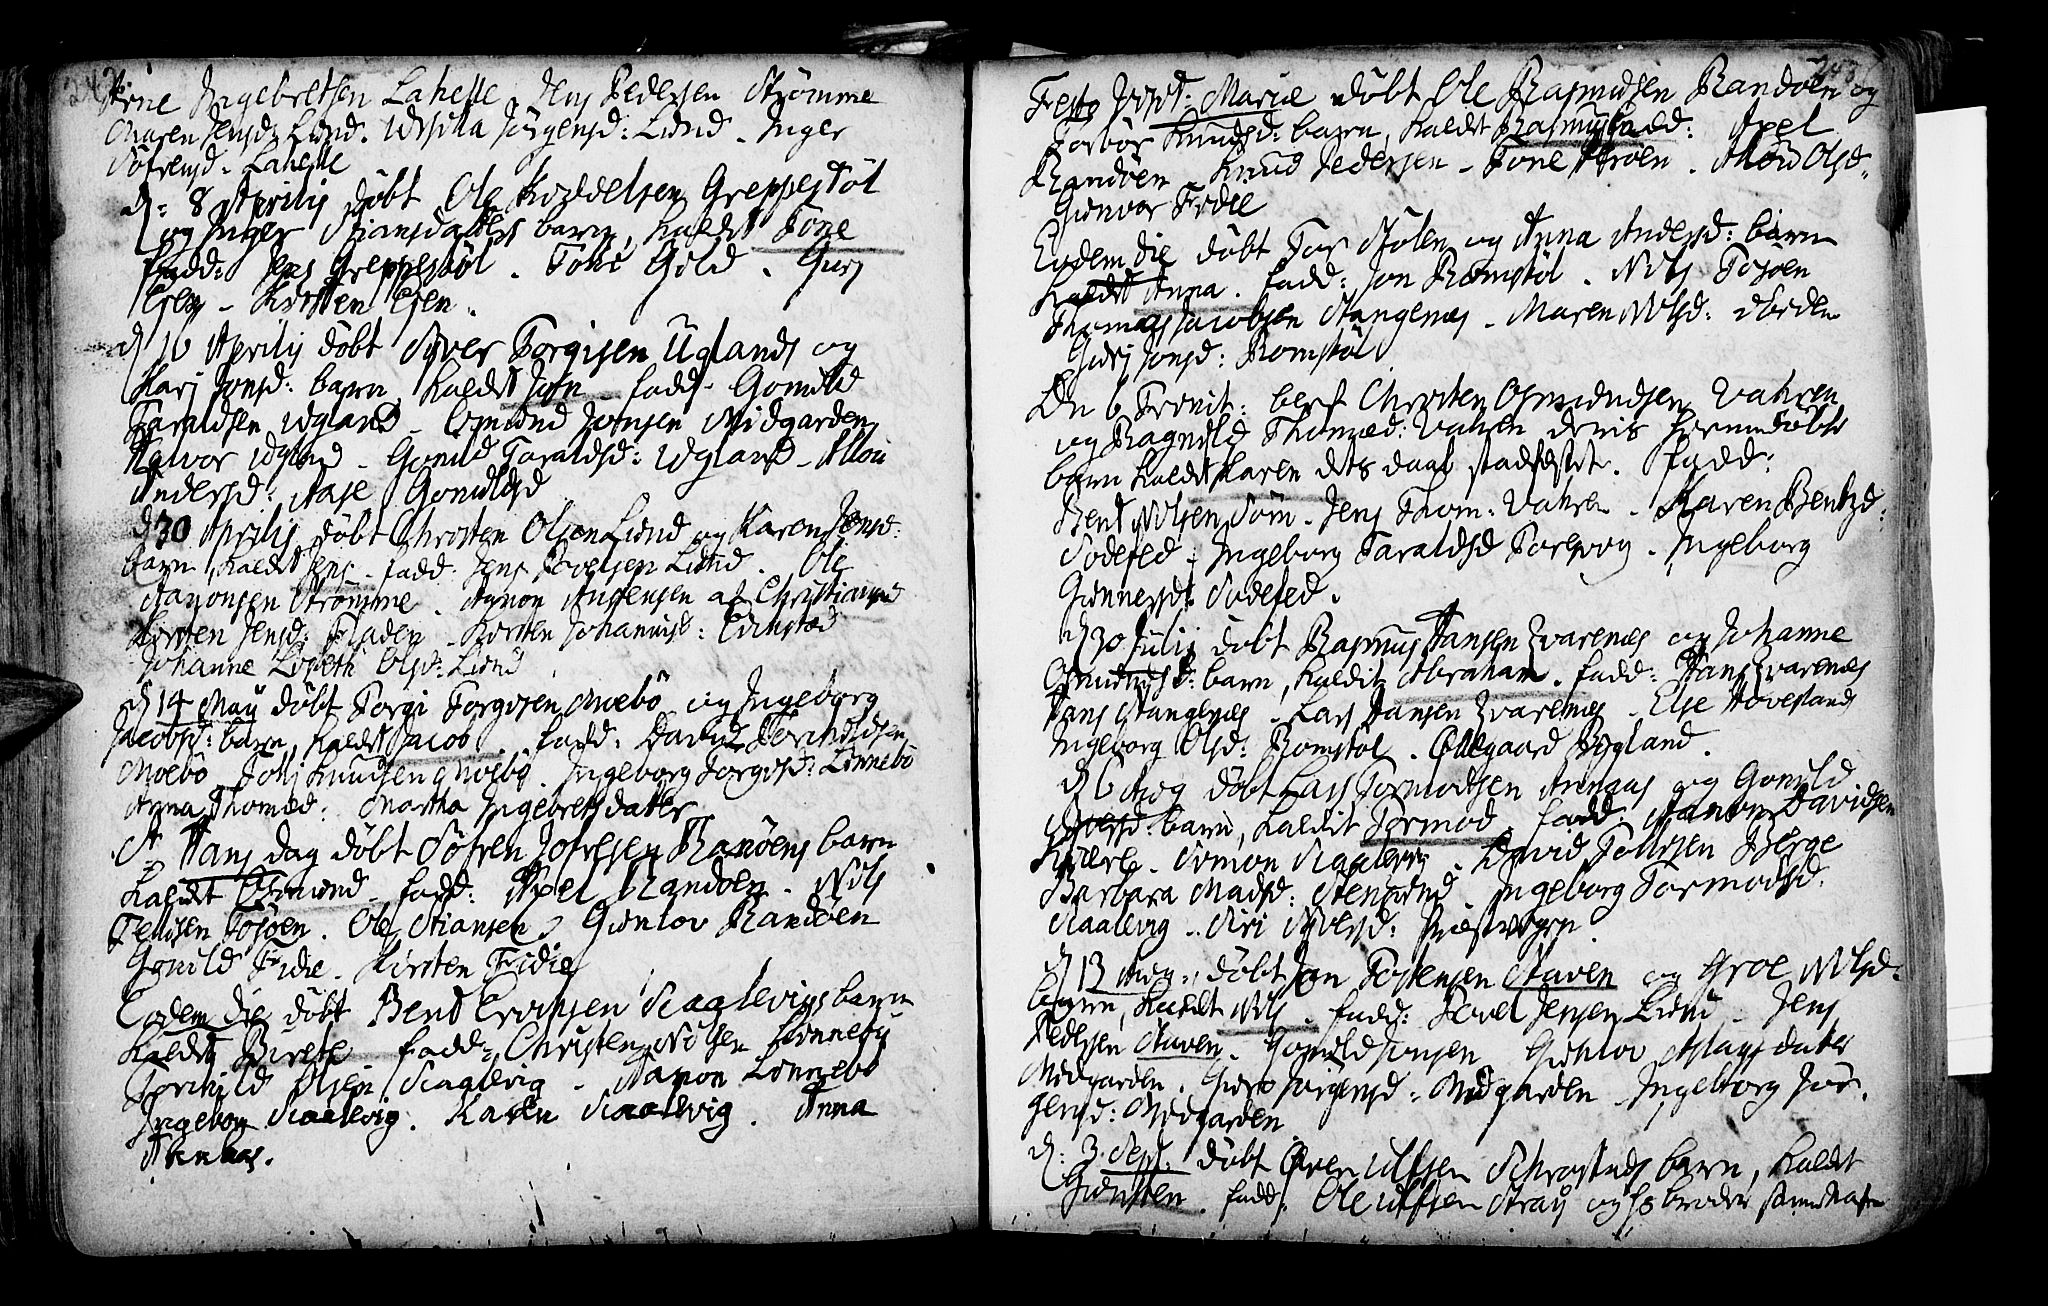 242
Arne Ingebretsen Lahelle, Jens Pedersen Strømme
Maren Jensd: Lund. Ursula Jørgensd: Lund. Inger
Søfrensd. Lahelle
d: 8 Aprilis døbt Ole Kieldelsen Greppestøl
og Inger Stiansdatters barn, kaldet Tone
fadd: Jens Greppestøl. Tohe Gild. Guri
Eien - Kirsten Eien.
d 16 Aprilis døbt Syver Torgisen Uglands og
Kari Jonsd: barn, kaldet John fadd. Gomuld
Taraldsen Ugland. Osmund Jonsen Midgarden
Halvor Ugland - Gomild Taraldsd: Ugland -
Andersd: Aase Gomuldsd
d 30 Aprilis døbt Christen Olsen Lund og Karen Jensd:
barn, kaldet Jens. fadd: Jens Povelsen Lund. Ole
Aanonsen Strømme. Aanon Andersen af Christiansand
Kirsten Jensd: Fladen. Kirsten Johannisd: Grimstad
Johanne Lisbeth Olsd: Lund
d 14 Maij døbt Torgi Torgisen Moebø og Ingeborg
Jacobsd: barn, kaldet Jacob. fadd: David Torchildsen
Moebø Tolli Knudsen Moebø. Ingeborg Torgisd: Linnebø
Anna Thomæd: Martha Ingebretsdatter
St Hans dag døbt Søfren Jofresen Randøens barn
kaldet Osmund. fadd: Axel Randøen. Nils
Tellisen Tosøen. Ole Stiansen Gunlov Randøen
Gonild Fidie. Kirsten Fidie
Eodem die døbt Bend Evensen Kaalevigs barn
kaldet Birete fadd: Christen Nilsen Linnebø
Torchild Olsen Kaalevig. Aanon Linnebø
Ingeborg Kaalevig. Karen Kaalevig. Anna
243
Festo Visit: Mariæ døbt Ole Rasmusen Randøen og
Torbør Knudsd: barn, kaldet Rasmus fadd: Axel
Randøen. Knud Pedersen - Tone Stroen. Olsd.
Gunvor Fidie
Eodem die døbt Tor Stølen og Anna Andersd: barn
kaldet Anna. fadd: Jon Romstøl. Nils Tosøen
Thomas Jacobsen Stangenes. Maren Nilsd:
Guri Jonsd: Romstøl
Dn 6 Trinit: blef Christen Osmundsen Vahren
og Ragnild Thomæd: Vahren deris hiemmedøbte
barn kaldet Karen dets daab stadfæstet. Fadd:
Bent Nilsen Søm. Jens Thom: Vahren. Karen Bentzd:
Sødefed. Ingeborg Taraldsd Torsvog. Ingeborg
Gunnersd: Sødefed.
d 30 Julij døbt Rasmus Hansen Kvarenæs og Johanne
Osmundsd: barn, kaldet Abraham. fadd: Hans Kvarenæs
Hans Stangenæs. Lars Hansen Kvarenæs. Else Hovestand
Ingeborg Olsd: Romstøl. Ollegaard Bygland.
d 6 Aug døbt Lars Tormodsen og Gonild
barn, kaldet Tormod. fadd: Aanon Davidsen
Kiære. Simon Kaalevig. David Tollisen Berge
Barbara Madsd: Ingeborg Tormodsd.
Kaalevig. Siri Prestvigen
d 13 Aug: døbt Jon Tostensen Staven og Groe Nilsd:
barn, kaldet Nils. fadd: Povel Jensen Lund. Jens
Pedersen Staven. Gomuld Jonsen Gunlov Aslagsdater
Midgarden. Guro Jørgensd: Midgarden. Ingeborg Jør.
gensd: Midgarden.
d: 3. Sept. døbt Even Ulfsen Schrostads barn, kaldet
Gunsten. fadd: Ole Ulfsen Straij og hs broder